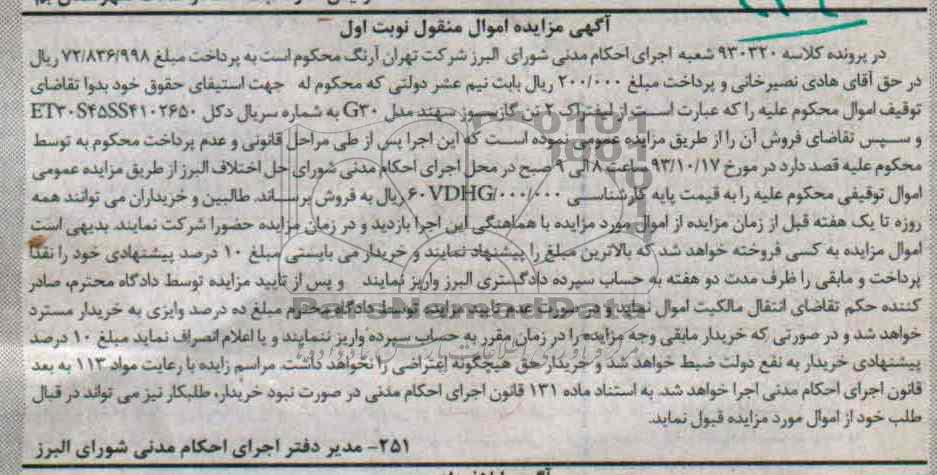 آگهی مزایده اموال منقول نوبت اول
در پرونده کلاسه ۹۳۰۳۲۰ شعبه اجرای احکام مدنی شورای البرز شرکت تهران آرنگ محکوم است به پرداخت مبلغ ۷۲/۸۳۶/۹۹۸ ریال
در حق آقای هادی نصیرخانی و پرداخت مبلغ ۲۰۰/۰۰۰ ریال بابت نیم عشر دولتی که محکوم له جهت استیفای حقوق خود بدوا تقاضای
توقیف اموال محکوم علیه را که عبارت است از لیفتراک ۲ تن گازسوز سهند مدل G۳۰ به شماره سریال دکل ET۳۰S۴۵SS۴۱۰۲۶۵۰
و سپس تقاضای فروش آن را از طریق مزایده عمومی نموده است که این اجرا پس از طی مراحل قانونی و عدم پرداخت محکوم به توسط
محکوم علیه قصد دارد در مورخ ۹۳/۱۰/۱۷ ساعت ۸ الی ۹ صبح در محل اجرای احکام مدنی شورای حل اختلاف البرز از طریق مزایده عمومی
اموال توقیفی محکوم علیه را به قیمت پایه کارشناسی ۶۰VDHG/۰۰۰/۰۰۰ ریال به فروش برساند. طالبین و خریداران می توانند همه
روزه تا یک هفته قبل از زمان مزایده از اموال مورد مزایده با هماهنگی این اجرا بازدید و در زمان مزایده حضورا شرکت نمایند. بدیهی است
اموال مزایده به کسی فروخته خواهد شد که بالاترین مبلغ را پیشنهاد نمایند و خریدار می بایستی مبلغ ۱۰ درصد پیشنهادی خود را نقدا
پرداخت و مابقی را ظرف مدت دو هفته به حساب سپرده دادگستری البرز واریز نمایند و پس از تایید مزایده توسط دادگاه محترم، صادر
کننده حکم تقاضای انتقال مالکیت اموال نماید و در صورت عدم تایید مزایده توسط دادگاه محترم مبلغ ده درصد واریزی به خریدار مسترد
خواهد شد و در صورتی که خریدار مابقی وجه مزایده را در زمان مقرر به حساب سپرده واریز ننمایند و یا اعلام انصراف نماید مبلغ ۱۰ درصد
پیشنهادی خریدار به نفع دولت ضبط خواهد شد و خریدار حق هیچگونه اعتراضی را نخواهد داشت. مراسم زایده با رعایت مواد ۱۱۳ به بعد
قانون اجرای احکام مدنی اجرا خواهد شد. به استناد ماده ۱۳۱ قانون اجرای احکام مدنی در صورت نبود خریدار، طلبکار نیز می تواند در قبال
طلب خود از اموال مورد مزایده قبول نماید.
۲۵۱- مدیر دفتر اجرای احکام مدنی شورای البرز